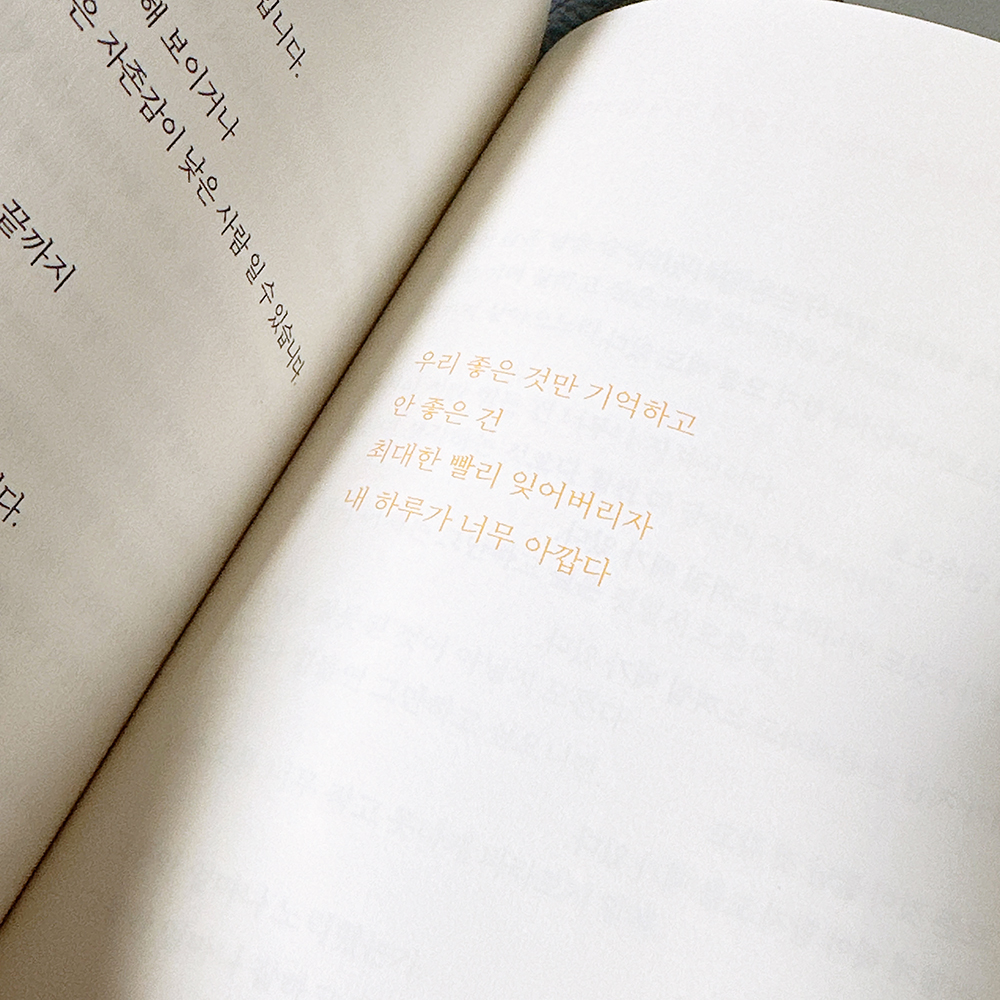 입니다.
해 보이거나
은 자존감이 낮은 사람 일 수 있습니다.
끝까지
다.
우리 좋은 것만 기억하고
안 좋은 건
최대한 빨리 잊어버리자
내 하루가 너무 아깝다